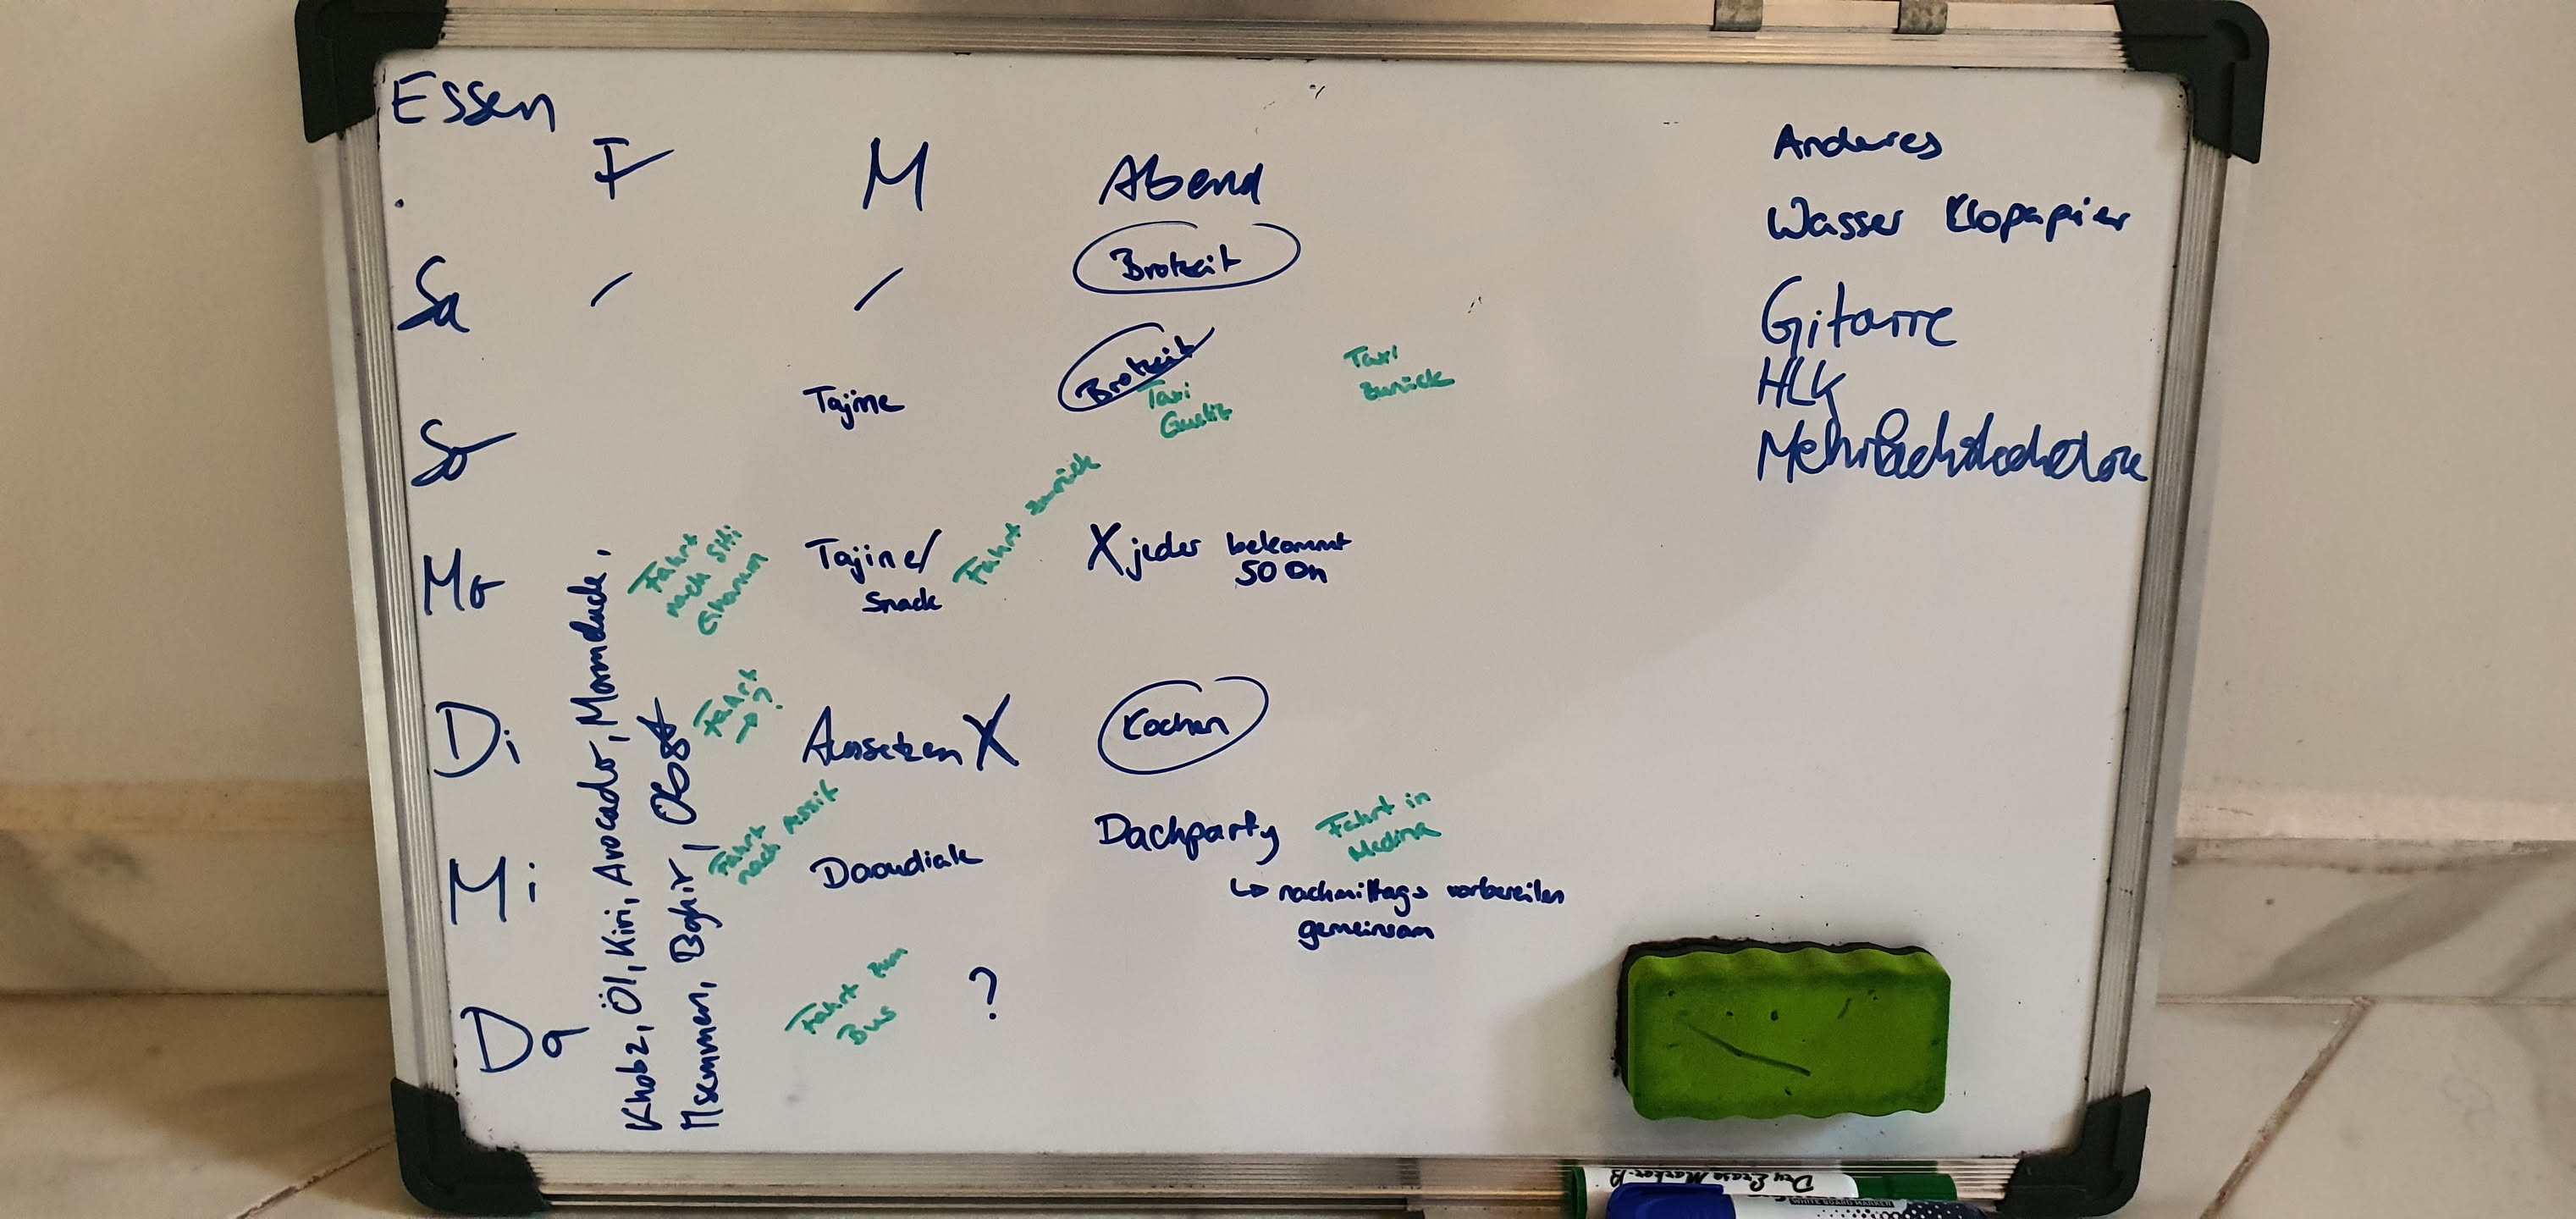 Essen
F M Abend
Sa Brotzeit
So Tajine Brotzeit
Taxi
Gueliz
Taxi
zurück
Mo
Fahrt
nach Siti
Tajine/
Snack
Fahrt zurück
X jeder bekommt
50 Dh
Di
Fahrt
→ ?
Aussetzen X
Kochen
Mi
Fahrt
nach
Daoudiate
Dachparty
Fahrt in
Medina
↳ nachmittags vorbereiten
gemeinsam
Do
Fahrt zum
Bus
?
Khobz, Öl, Kiri, Avocado, Marmelade,
Msemmen, Baghir, Obst
Anderes
Wasser Klopapier
Gitarre
HLK
Mehrfachsteckdose
Dry Erase Marker-B